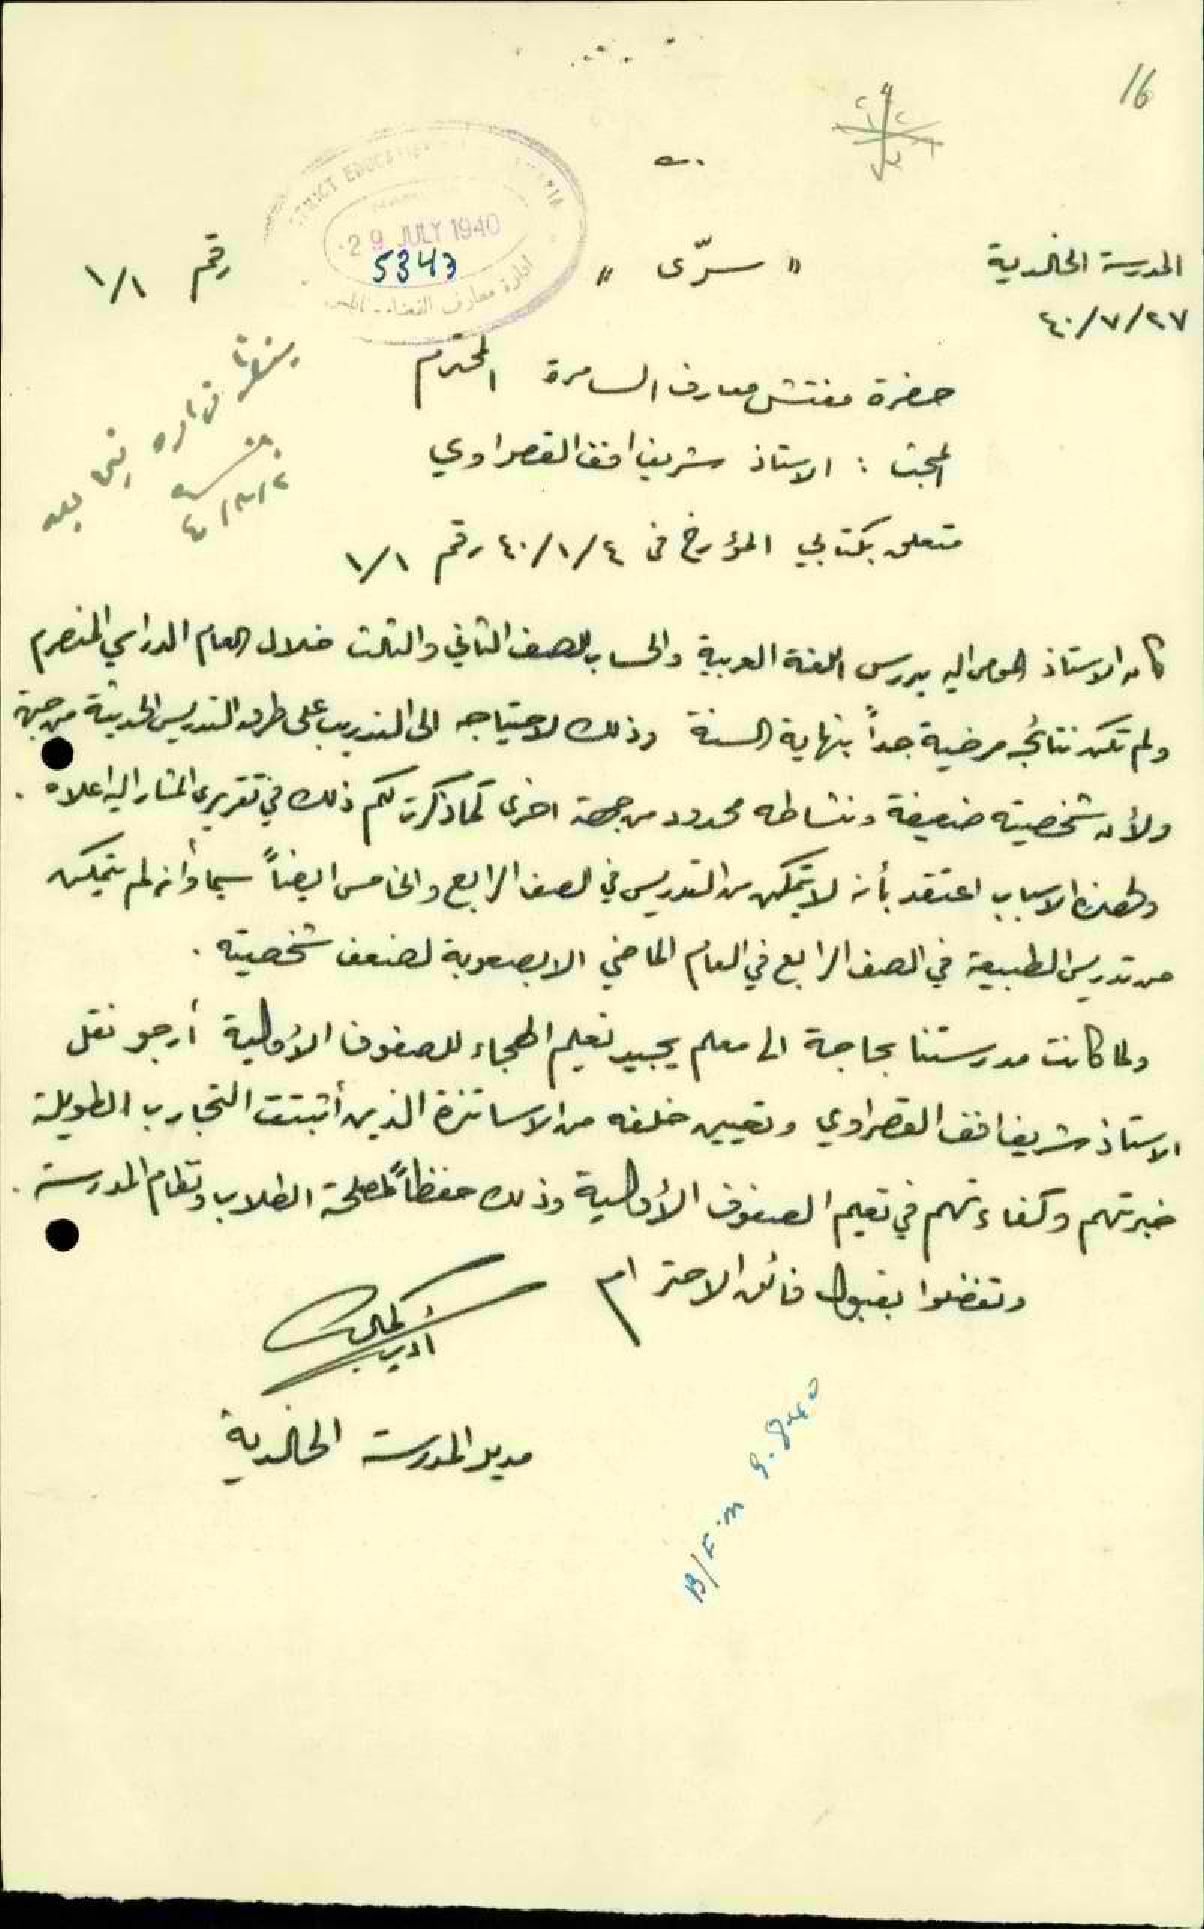 16
المدرسة الخالدية
« سرّى »
رقم ١/١
٤٠/٧/٢٧
DISTRICT EDUCATION
29 JULY 1940
5343
ادارة معارف القضاء
حضرة مفتش معارف السامرة المحترم
المبحث : الاستاذ شريف افندي القصراوي
متعلق بكتابي المؤرخ في ٤٠/١/٤ رقم ١/١
كان الاستاذ الموصى اليه يدرس اللغة العربية والحساب للصف الثاني والثالث خلال العام الدراسي المنصرم
ولم تكن نتائجه مرضية جداً بنهاية السنة وذلك لاحتياجه الى التدريب على طرق التدريس الحديثة من جهة
ولأن شخصيته ضعيفة ونشاطه محدود من جهة اخرى كما ذكرت لكم ذلك في تقريري المشار اليه اعلاه .
ولهذه الاسباب اعتقد بأنه لا يتمكن من التدريس في الصف الرابع والخامس ايضاً سيما وأنه لم يتمكن
من تدريس الطبيعة في الصف الرابع في العام الماضي الا بصعوبة لضعف شخصيته .
ولما كانت مدرستنا بحاجة الى معلم يجيد تعليم الهجاء للصفوف الأولية أرجو نقل
الاستاذ شريف افندي القصراوي وتعيين خلفه من الاساتذة الذين أثبتت التجارب الطويلة
خبرتهم وكفاءتهم في تعليم الصفوف الأولية وذلك حفظاً لمصلحة الطلاب ونظام المدرسة .
وتفضلوا بقبول فائق الاحترام
مدير المدرسة الخالدية
B/F in 9.840